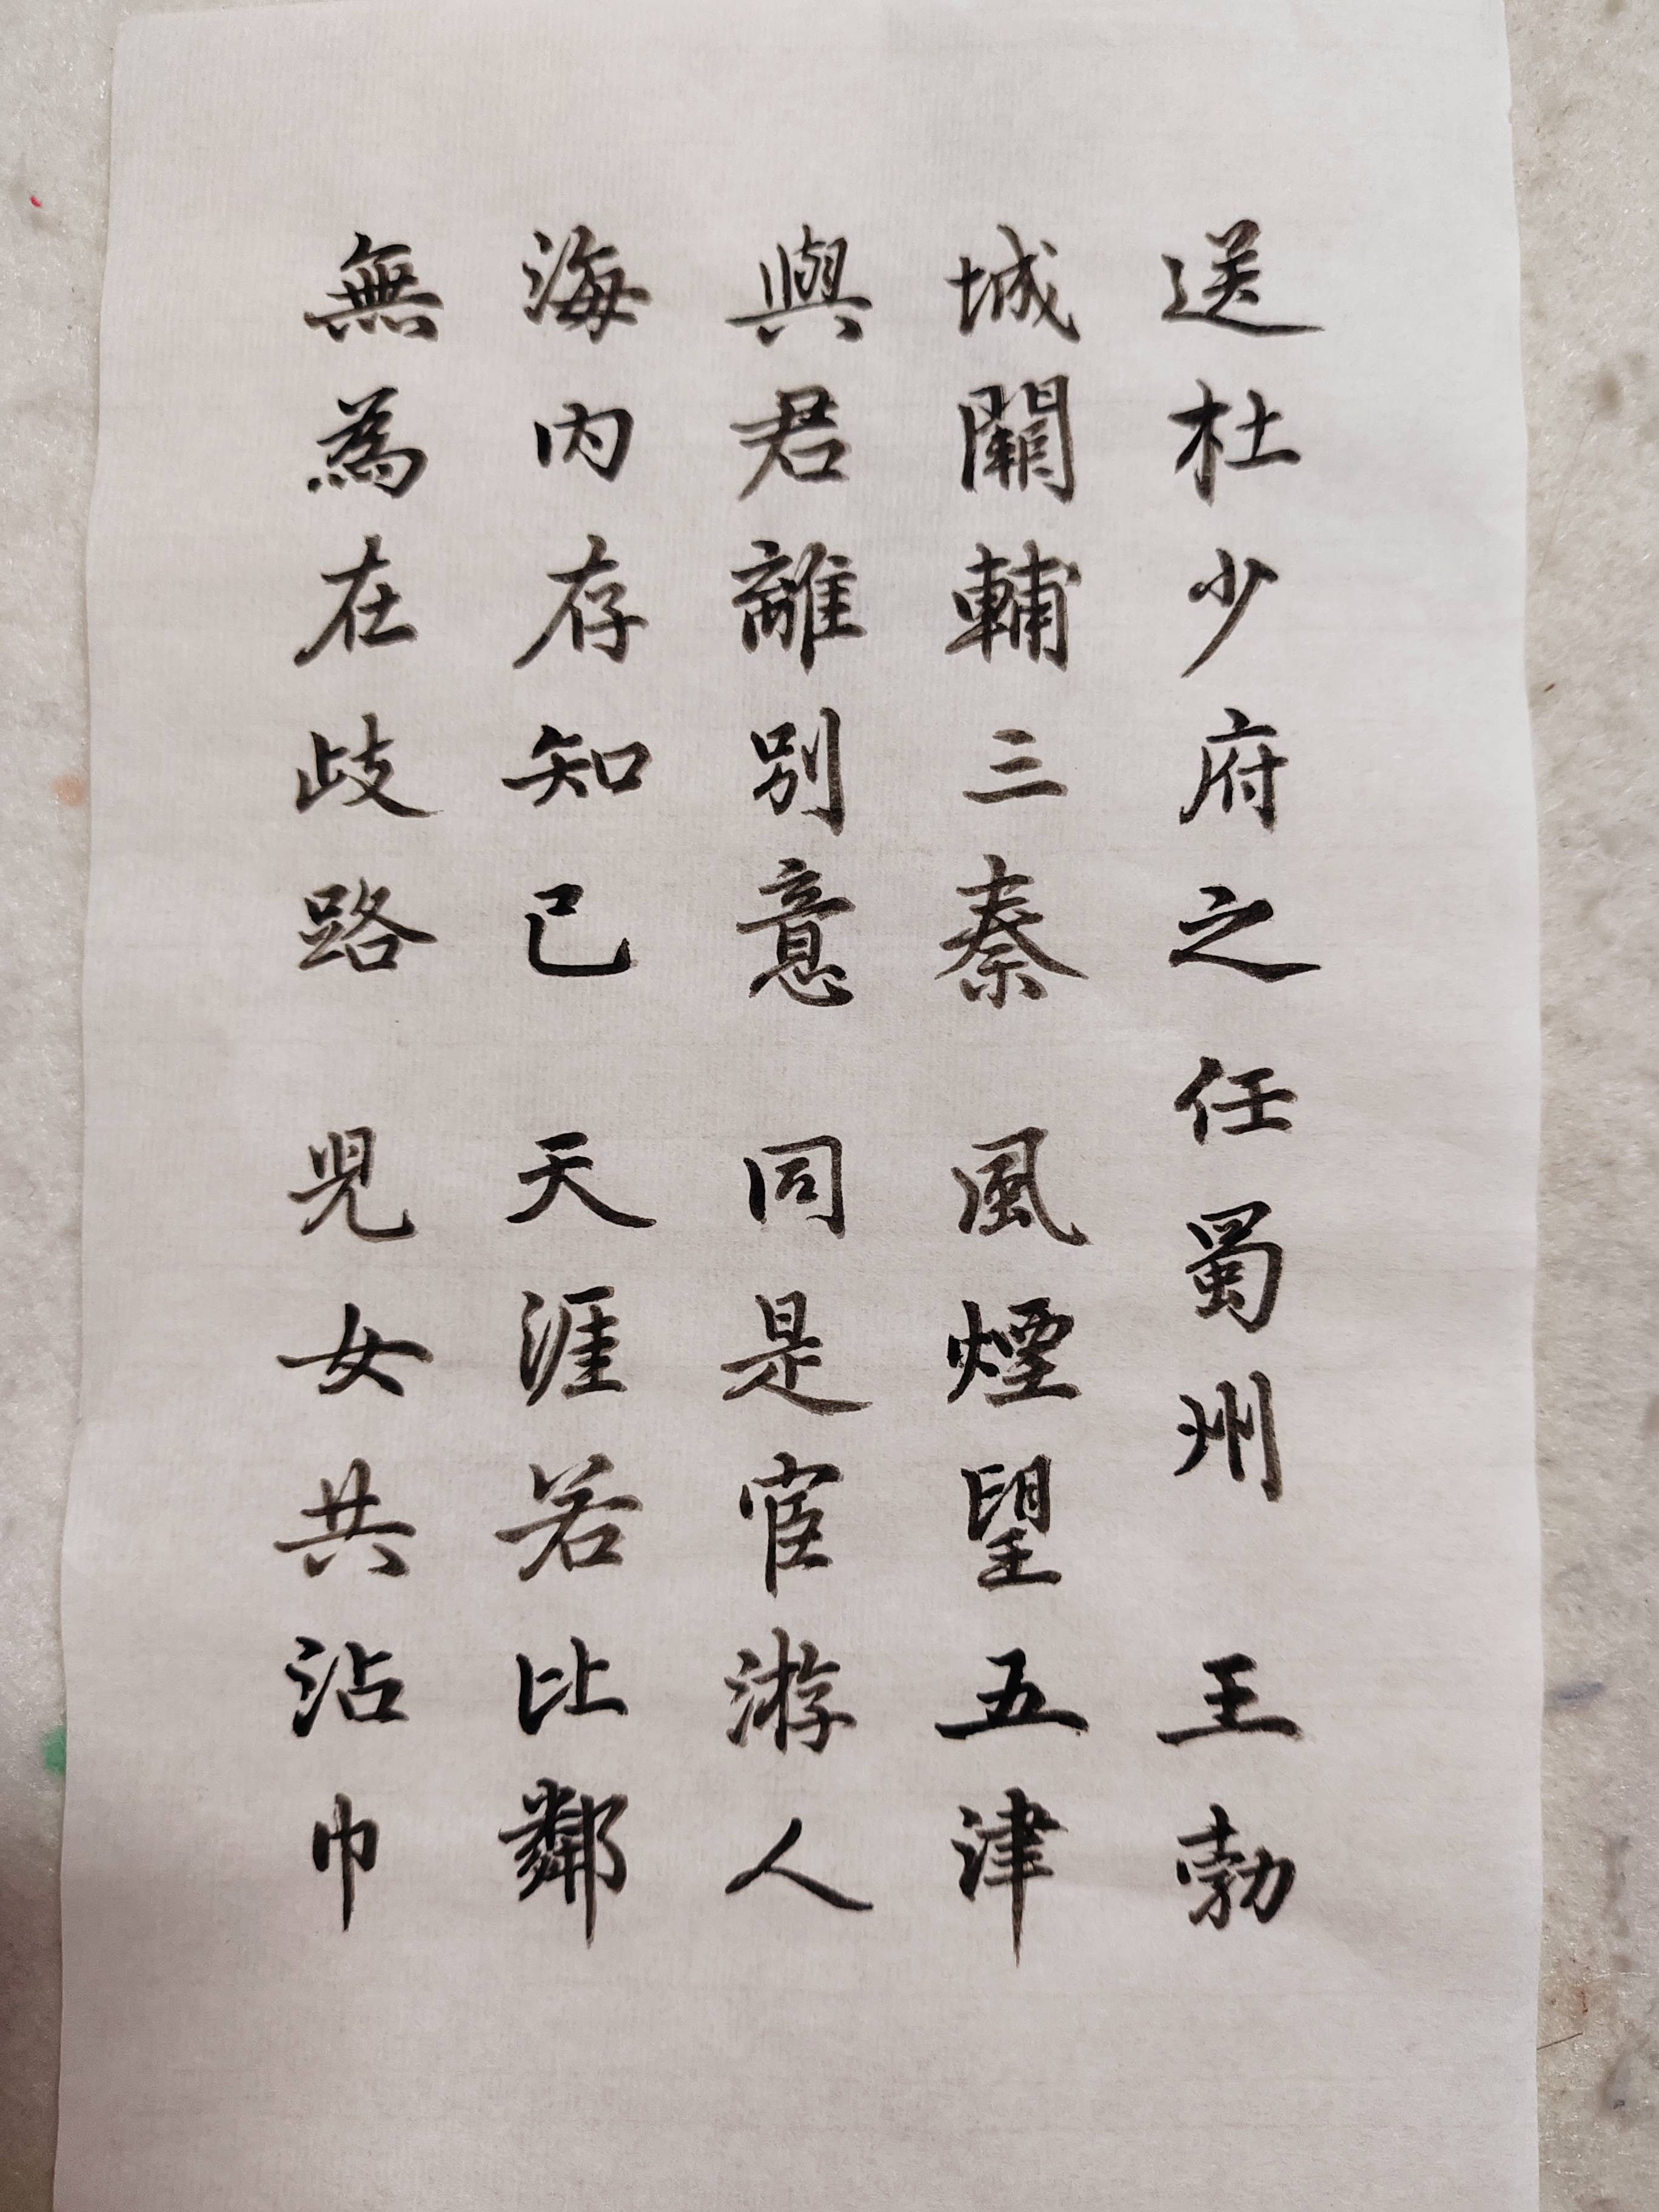 送杜少府之任蜀州 王勃
城闕輔三秦 風煙望五津
與君離別意 同是宦游人
海內存知己 天涯若比鄰
無為在歧路 兒女共沾巾